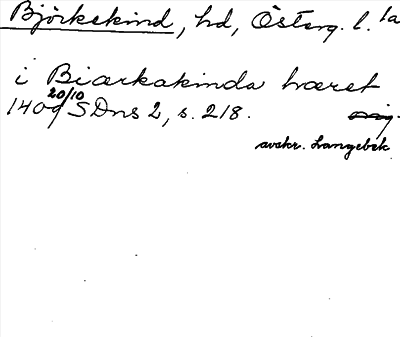 Björkekind, hd, Österg. l. 1a
i Biærkakinda hæret
20/10
1409 SDns 2, s. 218. orig.
avskr. Langebek